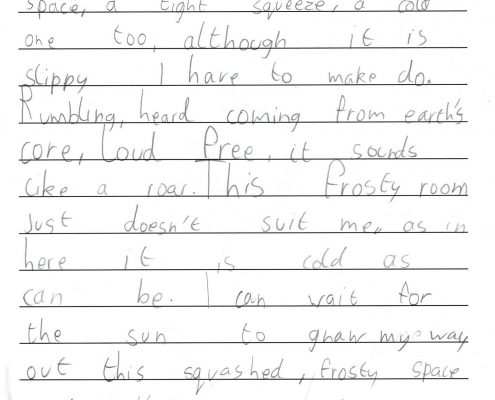 space, a tight squeeze, a cold
one too, although it is
slippy I have to make do.
Rumbling, heard coming from earth's
core, loud free, it sounds
like a roar. This frosty room
Just doesn't suit me, as in
here it is cold as
can be. I can wait for
the sun to gnaw my way
out this squashed, frosty space